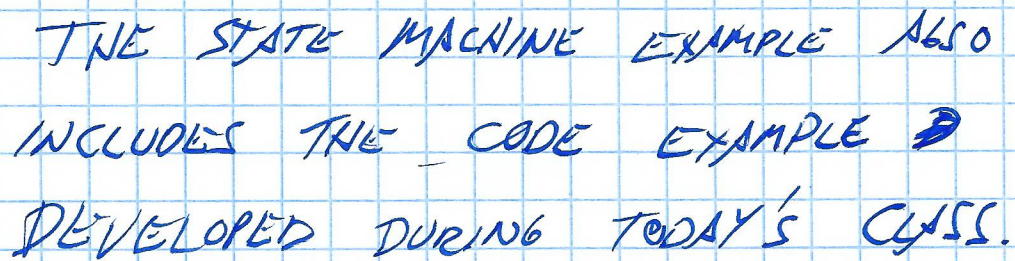 THE STATE MACHINE EXAMPLE ALSO
INCLUDES THE CODE EXAMPLE
DEVELOPED DURING TODAY'S CLASS.